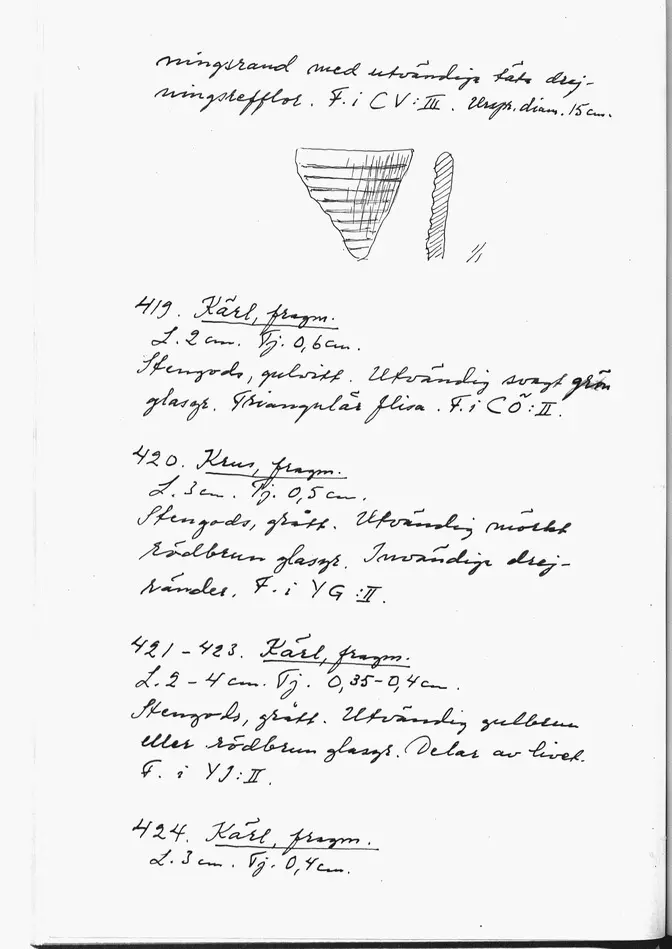 ningsrand med utvändiga täta drej-
ningsrefflor. F. i CV:III. Urspr. diam. 15 cm.
1/1
419. Kärl, fragm.
L. 2 cm. Tj. 0,6 cm.
Stengods, gulvitt. Utvändig svagt grön
glasyr. Triangulär flisa. F. i CÖ:II.
420. Krus, fragm.
L. 3 cm. Tj. 0,5 cm.
Stengods, grått. Utvändig mörkt
rödbrun glasyr. Invändiga drej-
ränder. F. i YG:II.
421-423. Kärl, fragm.
L. 2-4 cm. Tj. 0,35-0,4 cm.
Stengods, grått. Utvändig gulbrun
eller rödbrun glasyr. Delar av livet.
F. i YJ:II.
424. Kärl, fragm.
L. 3 cm. Tj. 0,4 cm.